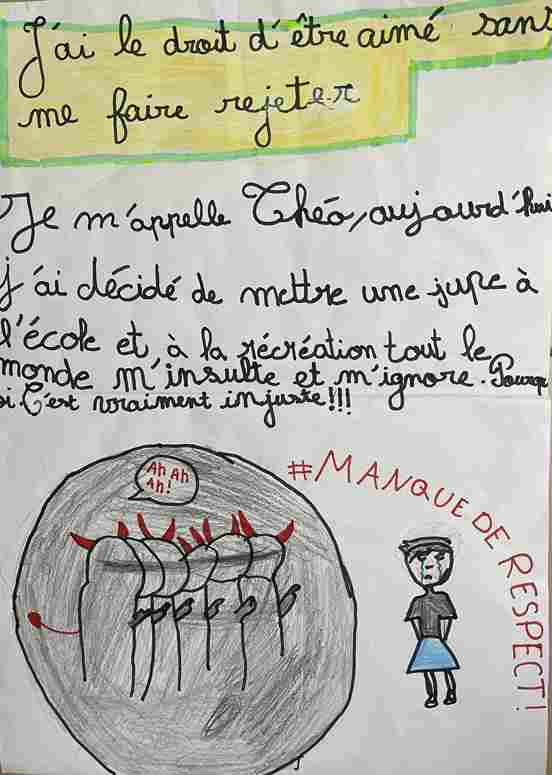 J'ai le droit d'être aimé sans
me faire rejeter
Je m'appelle Théo, aujourd'hui
j'ai décidé de mettre une jupe à
l'école et, à la récréation tout le
monde m'insulte et m'ignore. Pourqu
oi C'est vraiment injuste!!!
Ah Ah
Ah!
#MANQUE DE RESPECT!